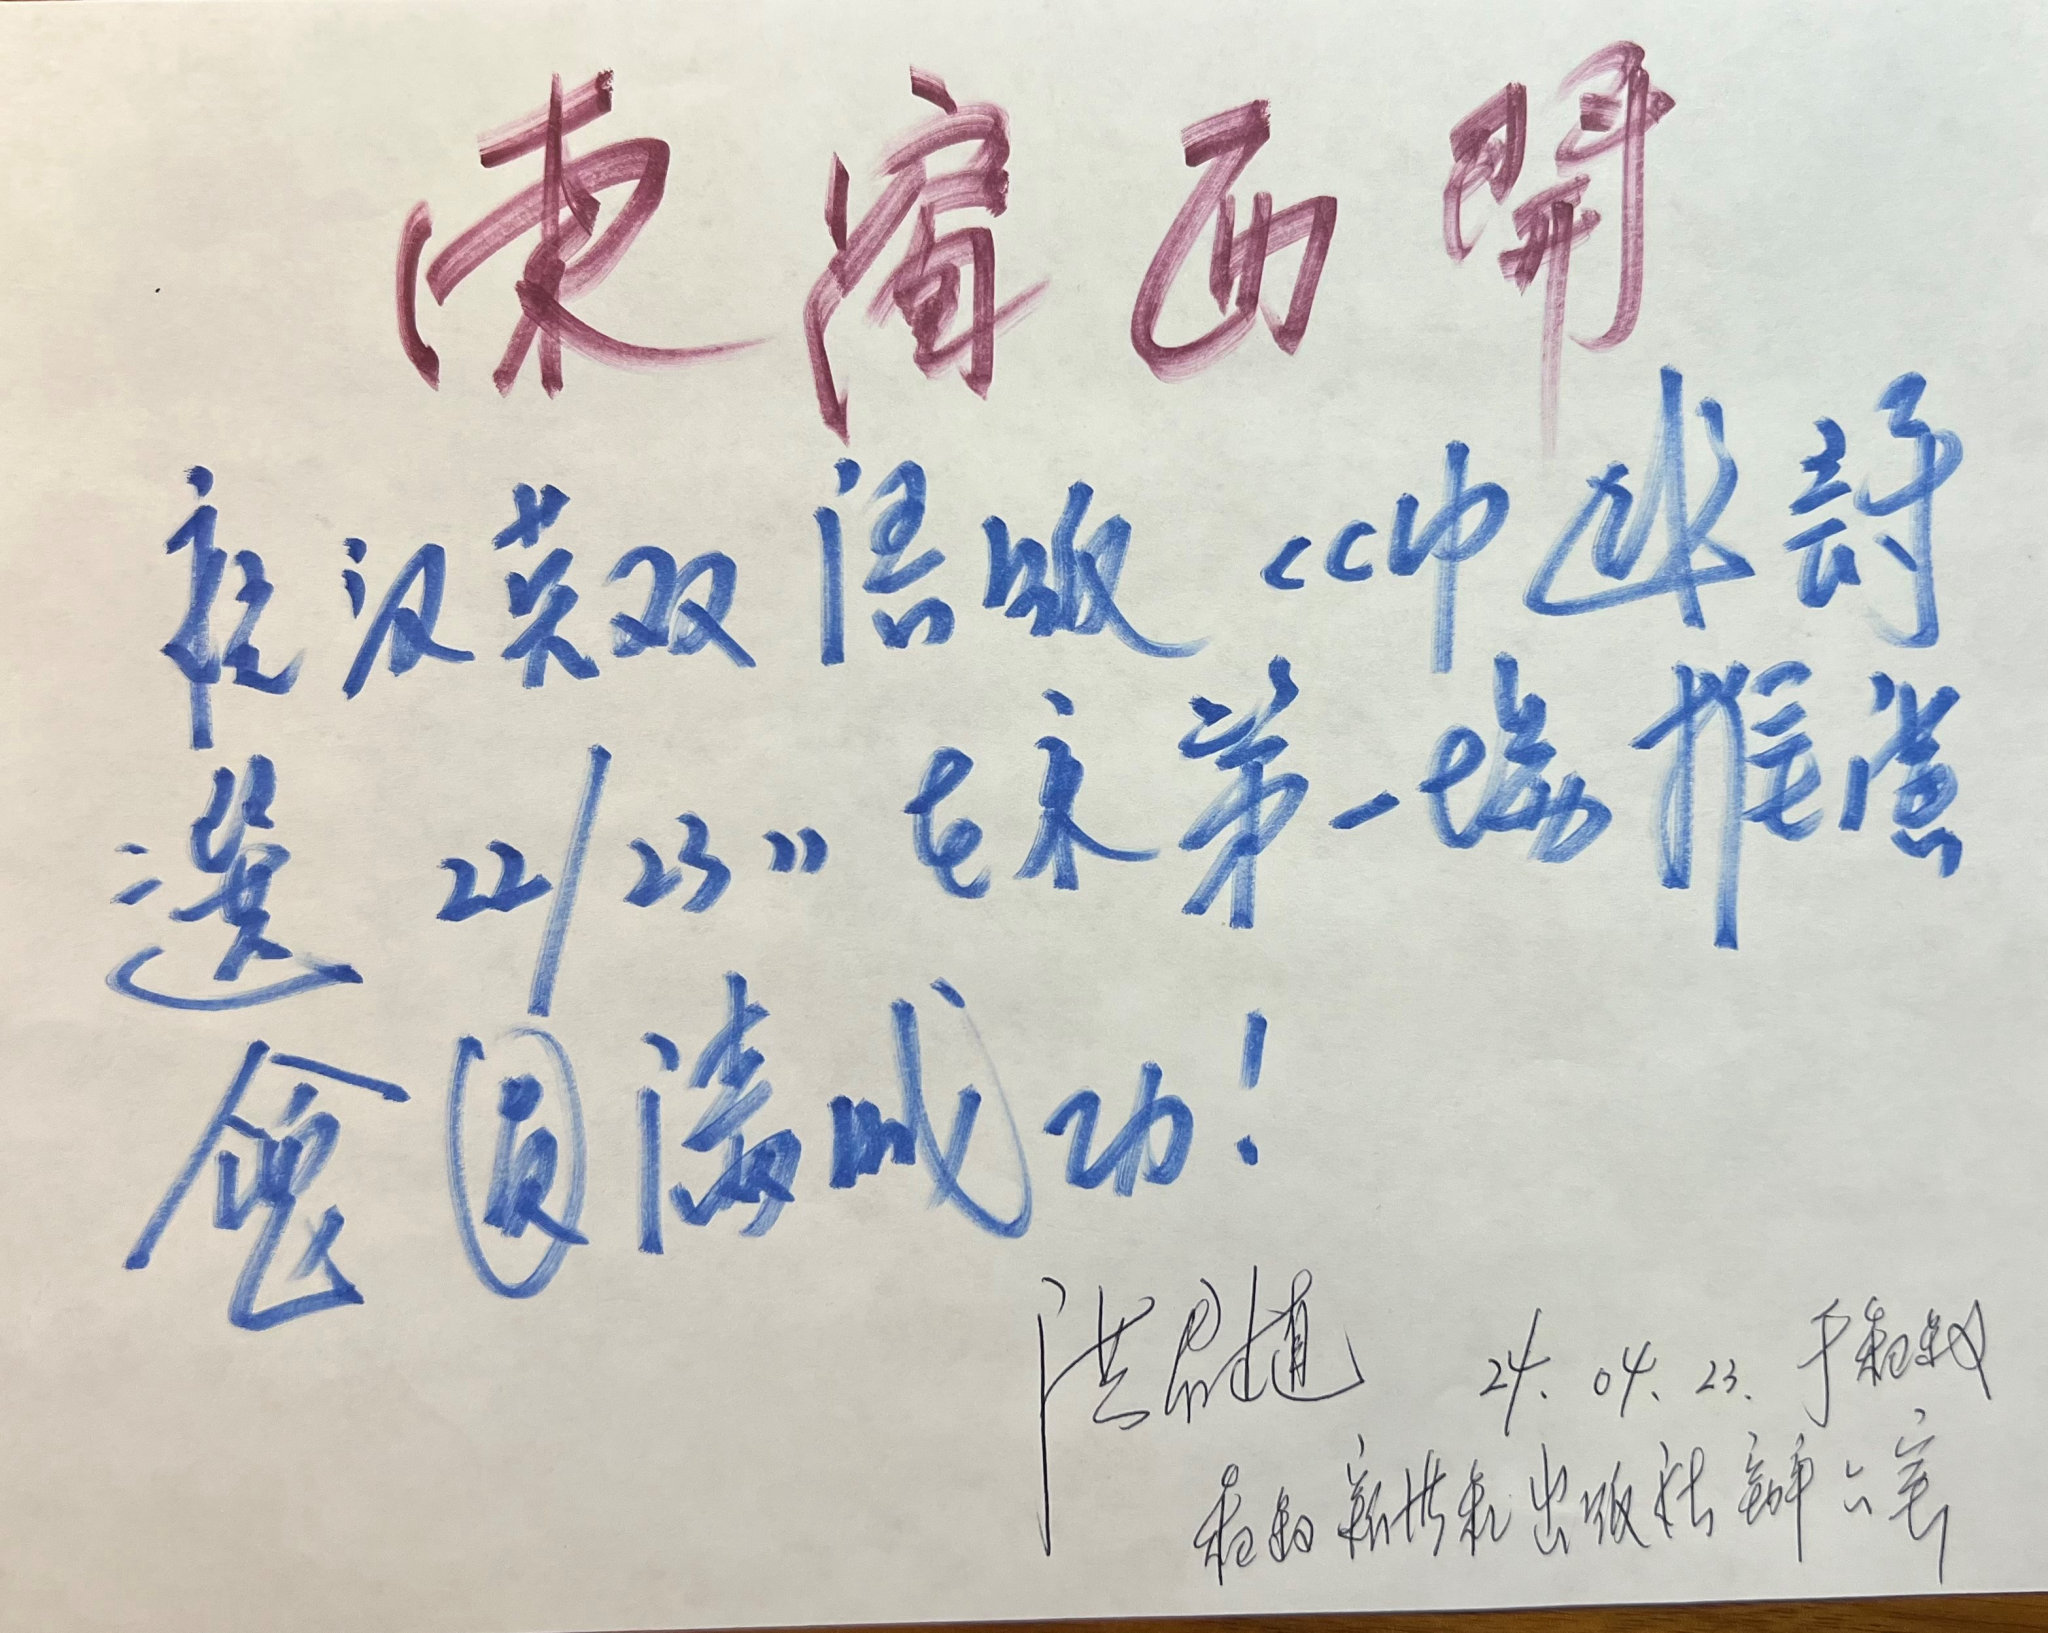 東濱西開
祝汉英双语版《中 詩
選 22/23》在京第一場推
會圓满成功!
洪君植 24.04.23.于紐約
紐約新世紀出版社辦公室